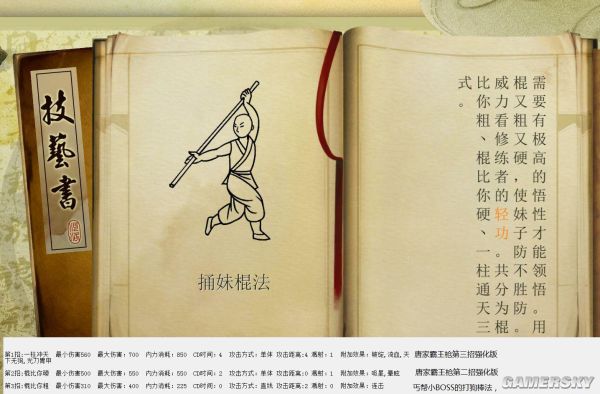 技藝書
捅妹棍法
需要有极高的悟性才能领悟。用
棍又粗又硬，使妹子防不胜防。
威力看修练者的轻功。共分为棍
比你粗、棍比你硬、一柱通天三
式。
第1招:一柱冲天 最小伤害560 最大伤害: 700 内力消耗: 850 CD时间: 4 攻击方式: 单体 攻击距离:4 溅射: 1 附加效果: 破绽,流血,天下无狼,无力着甲 唐家霸王枪第三招强化版
第2招:棍比你硬 最小伤害500 最大伤害: 550 内力消耗: 550 CD时间: 2 攻击方式: 单体 攻击距离:0 溅射: 1 附加效果: 吸星,晕眩 唐家霸王枪第二招强化版
第3招:棍比你粗 最小伤害310 最大伤害: 400 内力消耗: 225 CD时间: 0 攻击方式: 直线 攻击距离:2 溅射: 0 附加效果: 连击 丐帮小BOSS的打狗棒法,
GAMERSKY